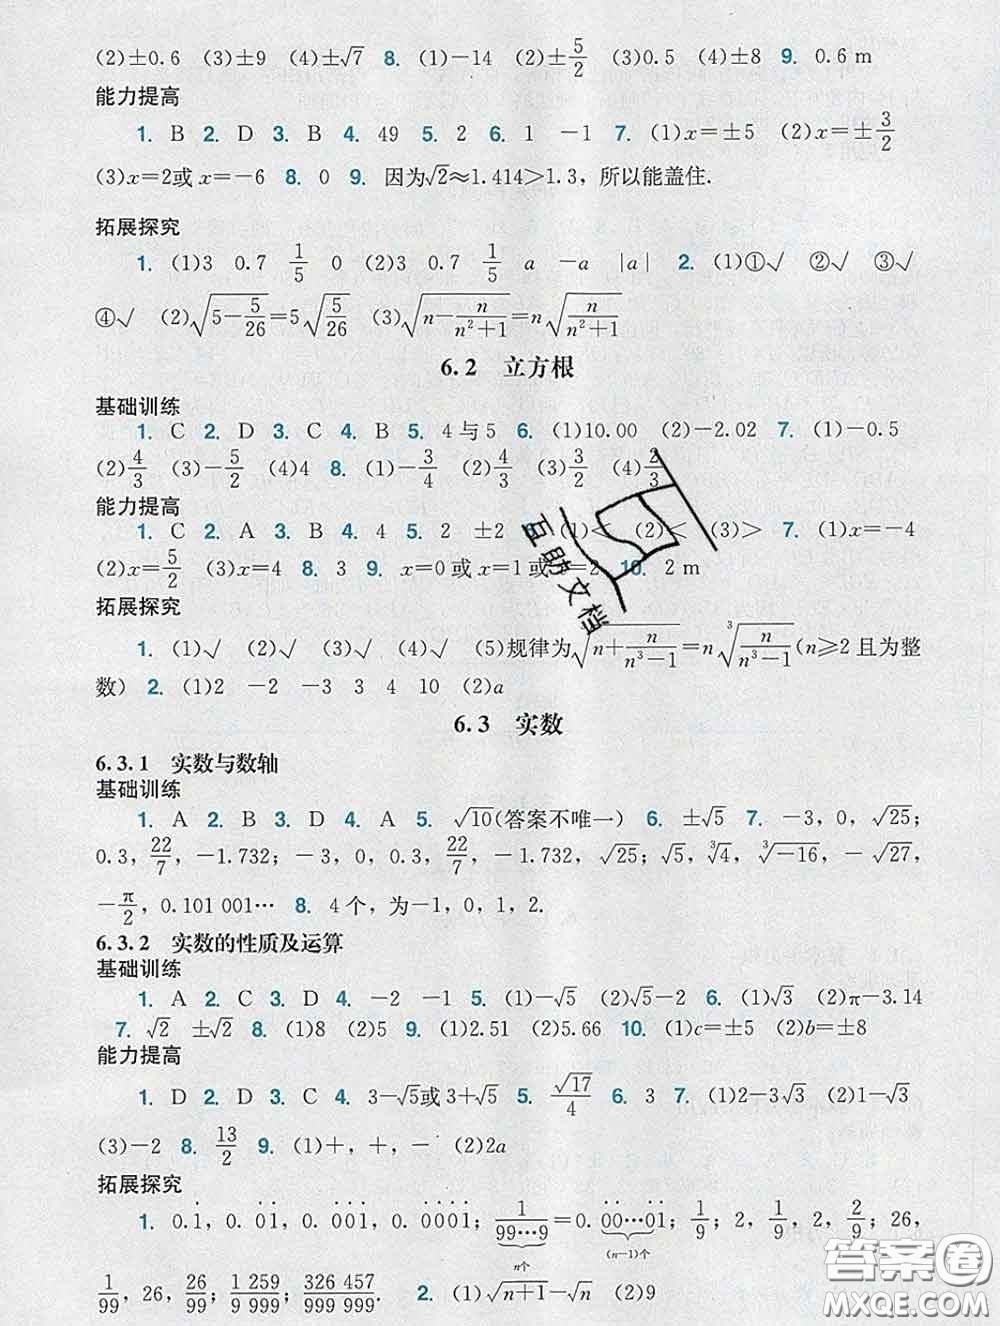 (2)±0.6 (3)±9 (4)±√7 8. (1)−14 (2)±5/2 (3)0.5 (4)±8 9. 0.6 m
能力提高
1. B 2. D 3. B 4. 49 5. 2 6. 1 −1 7. (1)x=±5 (2)x=±3/2
(3)x=2或x=−6 8. 0 9. 因为√2≈1.414>1.3，所以能盖住.
拓展探究
1. (1)3 0.7 1/5 0 (2)3 0.7 1/5 a −a |a| 2. (1)①√ ②√ ③√
④√ (2)√(5−5/26)=5√(5/26) (3)√(n−n/(n²+1))=n√(n/(n²+1))
6.2 立方根
基础训练
1. C 2. D 3. C 4. B 5. 4与5 6. (1)10.00 (2)−2.02 7. (1)−0.5
(2)4/3 (3)−5/2 (4)4 8. (1)−3/4 (2)4/3 (3)3/2 (4)2/3
能力提高
1. C 2. A 3. B 4. 4 5. 2 ±2 (1)< (2)< (3)> 7. (1)x=−4
(2)x=5/2 (3)x=4 8. 3 9. x=0或x=1或 =2 10. 2 m
拓展探究
1. (1)√ (2)√ (3)√ (4)√ (5)规律为√(n+n/(n³−1))=n∛(n/(n³−1))(n≥2且为整
数) 2. (1)2 −2 −3 3 4 10 (2)a
6.3 实数
6.3.1 实数与数轴
基础训练
1. A 2. B 3. D 4. A 5. √10(答案不唯一) 6. ±√5 7. −3，0，√25；
0.3，22/7，−1.732；−3，0，0.3，22/7，−1.732，√25；√5，∛4，∛−16，−√27，
−π/2，0.101 001… 8. 4个，为−1，0，1，2.
6.3.2 实数的性质及运算
基础训练
1. A 2. C 3. D 4. −2 −1 5. (1)−√5 (2)√5−2 6. (1)√3 (2)π−3.14
7. √2 ±√2 8. (1)8 (2)5 9. (1)2.51 (2)5.66 10. (1)c=±5 (2)b=±8
能力提高
1. D 2. D 3. C 4. 3−√5或3+√5 5. √17/4 6. 3 7. (1)2−3√3 (2)1−√3
(3)−2 8. 13/2 9. (1)+，+，− (2)2a
拓展探究
1. 0.1̇，0.0̇1̇，0.0̇01̇，0.0̇001̇；1/99…9 (n个)=0.0̇0…01̇ ((n−1)个)；1/9；2，1/9，2，2/9；26，
1/99，26，26/99；1 259/9 999；326 457/999 999. 2. (1)√(n+1)−√n (2)9
互助文档
答案圈
MXQE.COM